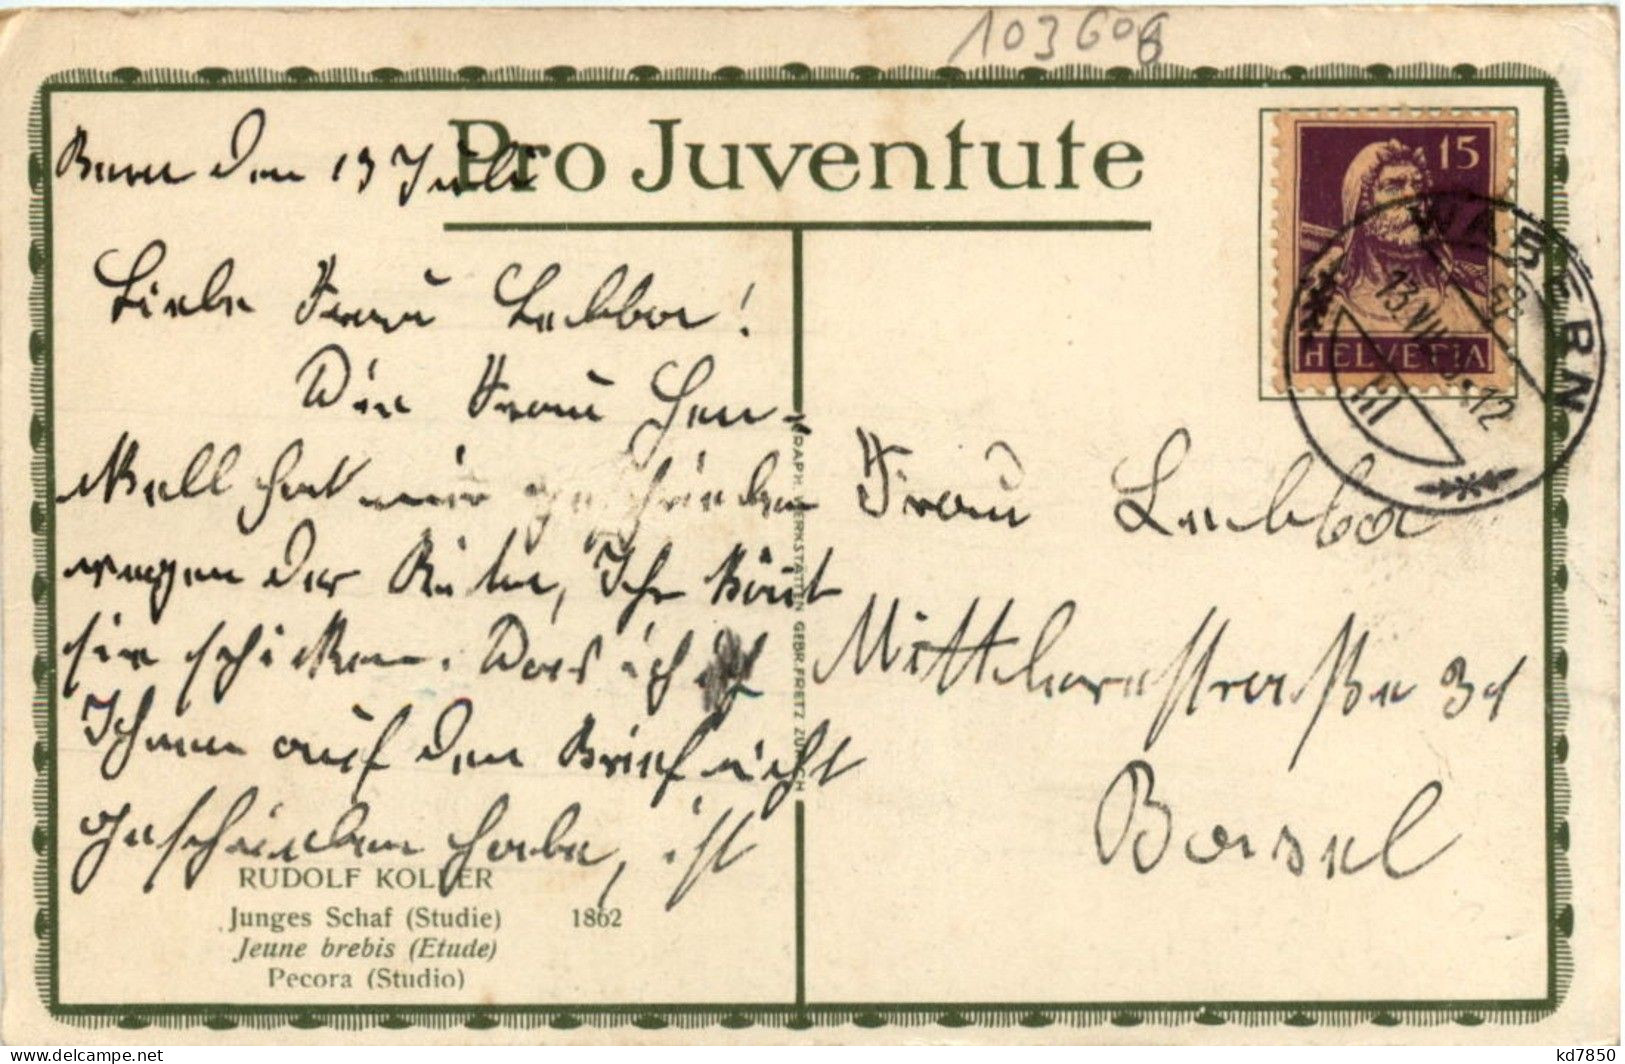 103606
Pro Juventute
Bern den 13 Juli
15
HELVETIA
BERN
13.VII
12
III
Liebe Frau
Die Frau Hen-
kell hat mir geschrieben
wegen der
sie schicken. Das ich
Ihnen auf den Brief nicht
geschrieben habe, ist
Frau
Mittlerestraße 31
Basel
GRAPH. WERKSTÄTTEN GEBR. FRETZ ZÜRICH
RUDOLF KOLLER
Junges Schaf (Studie) 1862
Jeune brebis (Etude)
Pecora (Studio)
www.delcampe.net
kd7850